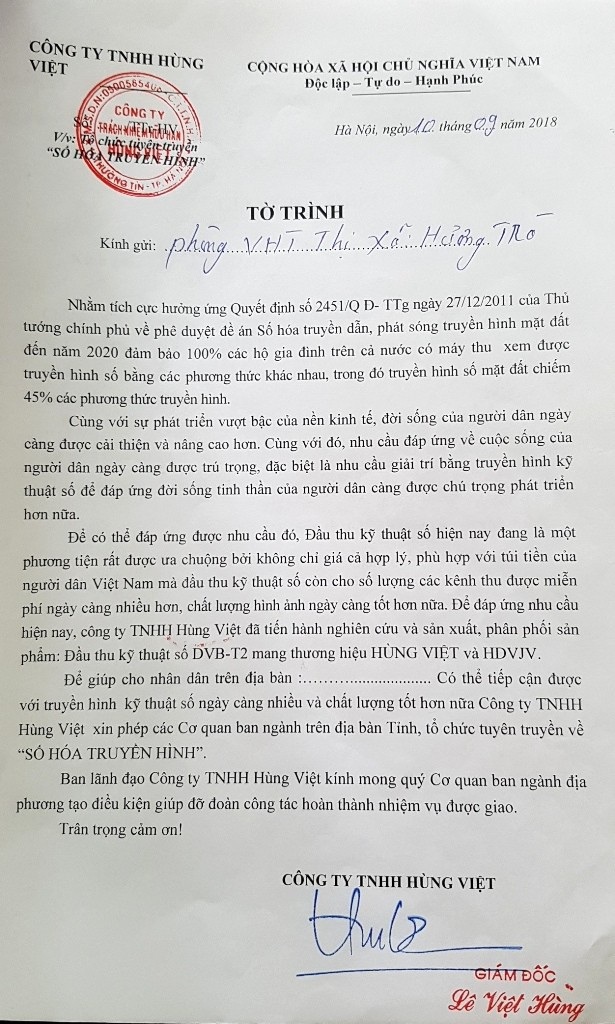 CÔNG TY TNHH HÙNG
VIỆT
CỘNG HÒA XÃ HỘI CHỦ NGHĨA VIỆT NAM
Độc lập – Tự do – Hạnh Phúc
CÔNG TY
TRÁCH NHIỆM HỮU HẠN
HÙNG VIỆT
THƯỜNG TÍN - TP. HÀ NỘI
Số: /TTr-HV
V/v: Tổ chức tuyên truyền
“SỐ HÓA TRUYỀN HÌNH”
Hà Nội, ngày 10 tháng 09 năm 2018
TỜ TRÌNH
Kính gửi: Phòng VHTT Thị Xã Hương Trà
Nhằm tích cực hưởng ứng Quyết định số 2451/Q Đ- TTg ngày 27/12/2011 của Thủ
tướng chính phủ về phê duyệt đề án Số hóa truyền dẫn, phát sóng truyền hình mặt đất
đến năm 2020 đảm bảo 100% các hộ gia đình trên cả nước có máy thu xem được
truyền hình số bằng các phương thức khác nhau, trong đó truyền hình số mặt đất chiếm
45% các phương thức truyền hình.
Cùng với sự phát triển vượt bậc của nền kinh tế, đời sống của người dân ngày
càng được cải thiện và nâng cao hơn. Cùng với đó, nhu cầu đáp ứng về cuộc sống của
người dân ngày càng được trú trọng, đặc biệt là nhu cầu giải trí bằng truyền hình kỹ
thuật số để đáp ứng đời sống tinh thần của người dân càng được chú trọng phát triển
hơn nữa.
Để có thể đáp ứng được nhu cầu đó, Đầu thu kỹ thuật số hiện nay đang là một
phương tiện rất được ưa chuộng bởi không chỉ giá cả hợp lý, phù hợp với túi tiền của
người dân Việt Nam mà đầu thu kỹ thuật số còn cho số lượng các kênh thu được miễn
phí ngày càng nhiều hơn, chất lượng hình ảnh ngày càng tốt hơn nữa. Để đáp ứng nhu cầu
hiện nay, công ty TNHH Hùng Việt đã tiến hành nghiên cứu và sản xuất, phân phối sản
phẩm: Đầu thu kỹ thuật số DVB-T2 mang thương hiệu HÙNG VIỆT và HDVJV.
Để giúp cho nhân dân trên địa bàn :........................... Có thể tiếp cận được
với truyền hình kỹ thuật số ngày càng nhiều và chất lượng tốt hơn nữa Công ty TNHH
Hùng Việt xin phép các Cơ quan ban ngành trên địa bàn Tỉnh, tổ chức tuyên truyền về
“SỐ HÓA TRUYỀN HÌNH”.
Ban lãnh đạo Công ty TNHH Hùng Việt kính mong quý Cơ quan ban ngành địa
phương tạo điều kiện giúp đỡ đoàn công tác hoàn thành nhiệm vụ được giao.
Trân trọng cảm ơn!
CÔNG TY TNHH HÙNG VIỆT
GIÁM ĐỐC
Lê Việt Hùng